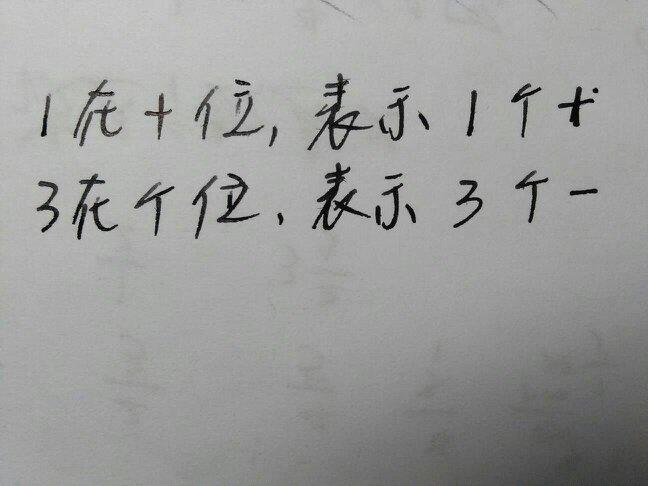 1在十位,表示1个十
3在个位,表示3个一